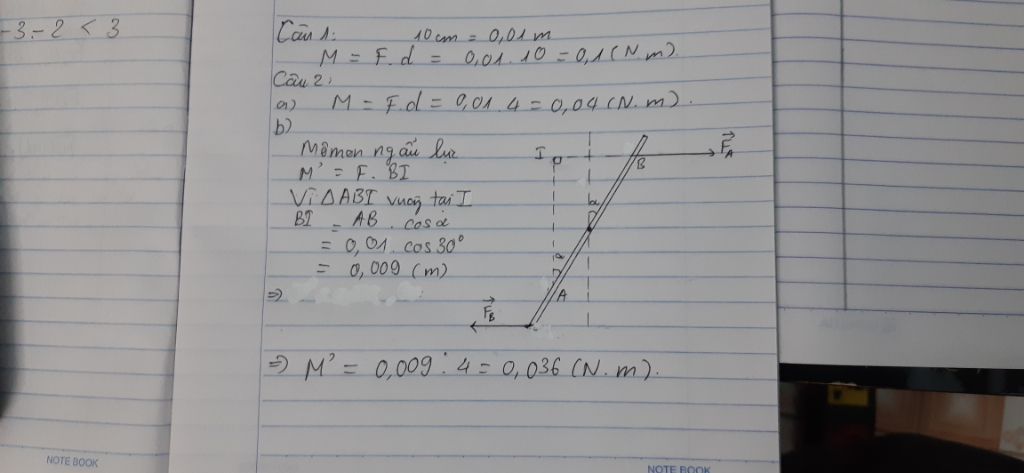 -3.-2 < 3
Câu 1: 10cm = 0,01 m
M = F.d = 0,01.10 = 0,1 (N.m)
Câu 2:
a) M = F.d = 0,01.4 = 0,04 (N.m).
b)
Mômen ngẫu lực
M' = F. BI
Vì ΔABI vuông tại I
BI = AB . cosα
= 0,01. cos30°
= 0,009 (m)
=>
I
B
F⃗A
α
α
A
F⃗B
=> M' = 0,009 . 4 = 0,036 (N.m).
NOTE BOOK
NOTE BOOK